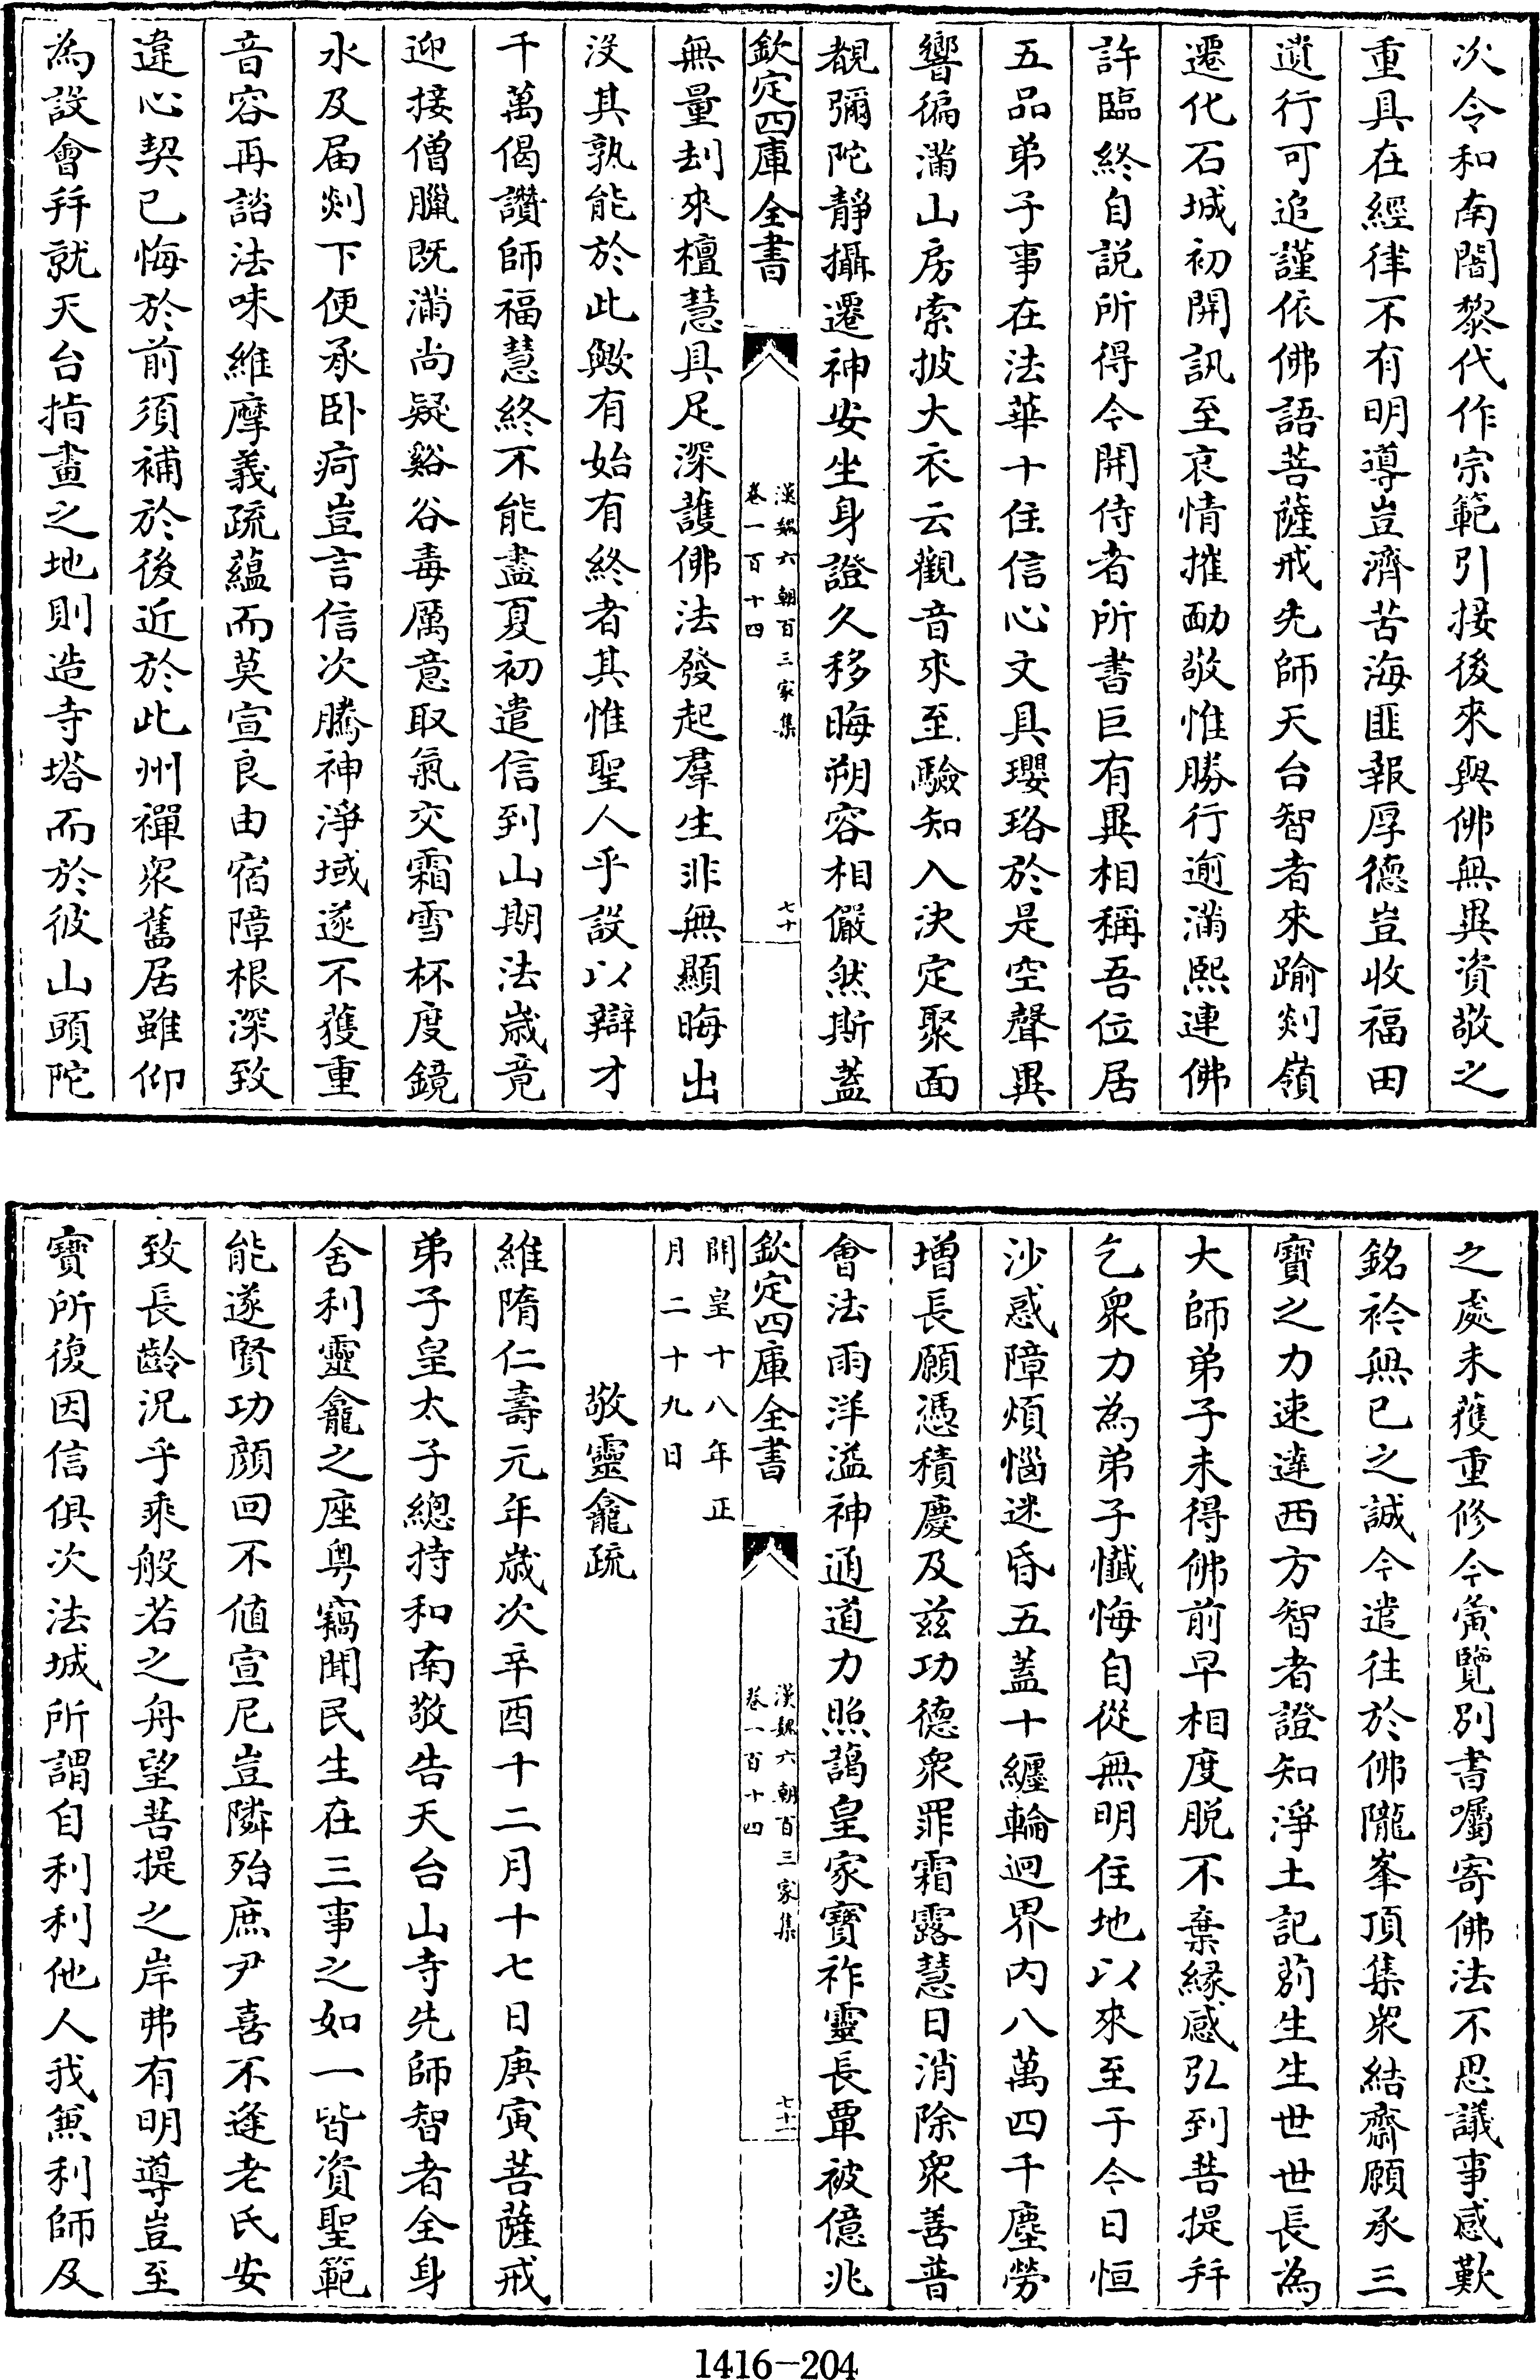 次令和南闍黎代作宗範引接後來與佛無異資敬之
重具在經律不有明導豈濟苦海匪報厚德豈收福田
遺行可追謹依佛語菩薩戒先師天台智者來踰剡嶺
遷化石城初開訊至哀情摧慟敬惟勝行逈滿熙連佛
許臨終自説所得今開侍者所書巨有異相稱吾位居
五品弟子事在法華十住信心文具瓔珞於是空聲異
響徧滿山房索披大衣云觀音來至驗知入決定聚面
覩彌陀靜攝遷神安坐身證久移晦朔容相儼然斯蓋
欽定四庫全書
漢魏六朝百三家集
卷一百十四
七十
無量刦來檀慧具足深護佛法發起羣生非無顯晦出
没其孰能於此歟有始有終者其惟聖人乎設以辯才
千萬偈讚師福慧終不能盡夏初遣信到山期法歲竟
迎接僧臘既滿尚疑谿谷毒厲意取氣交霜雪杯度鏡
水及届剡下便承卧疴豈言信次騰神淨域遂不獲重
音容再諮法味維摩義疏蘊而莫宣良由宿障根深致
違心契已悔於前須補於後近於此州禪衆舊居雖仰
為設會拜就天台指畫之地則造寺塔而於彼山頭陀
之處未獲重修今奝覽別書囑寄佛法不思議事感歎
銘衿無已之誠今遣往於佛隴峯頂集衆結齋願承三
寶之力速達西方智者證知淨土記莂生生世世長為
大師弟子未得佛前早相度脱不棄緣感弘到菩提拜
乞衆力為弟子懺悔自從無明住地以來至于今日恒
沙惑障煩惱迷昏五蓋十纏輪迴界内八萬四千塵勞
增長願憑積慶及兹功德衆罪霜露慧日消除衆善普
會法雨洋溢神通道力照藹皇家寶祚靈長覃被億兆
欽定四庫全書
漢魏六朝百三家集
卷一百十四
七十一
開皇十八年正
月二十九日
敬靈龕疏
維隋仁壽元年歲次辛酉十二月十七日庚寅菩薩戒
弟子皇太子總持和南敬告天台山寺先師智者全身
舍利靈龕之座粤竊聞民生在三事之如一皆資聖範
能遂賢功顔回不値宣尼豈隣殆庶尹喜不逢老氏安
致長齡況乎乘般若之舟望菩提之岸弗有明導豈至
寶所復因信俱次法城所謂自利利他人我兼利師及
1416-204